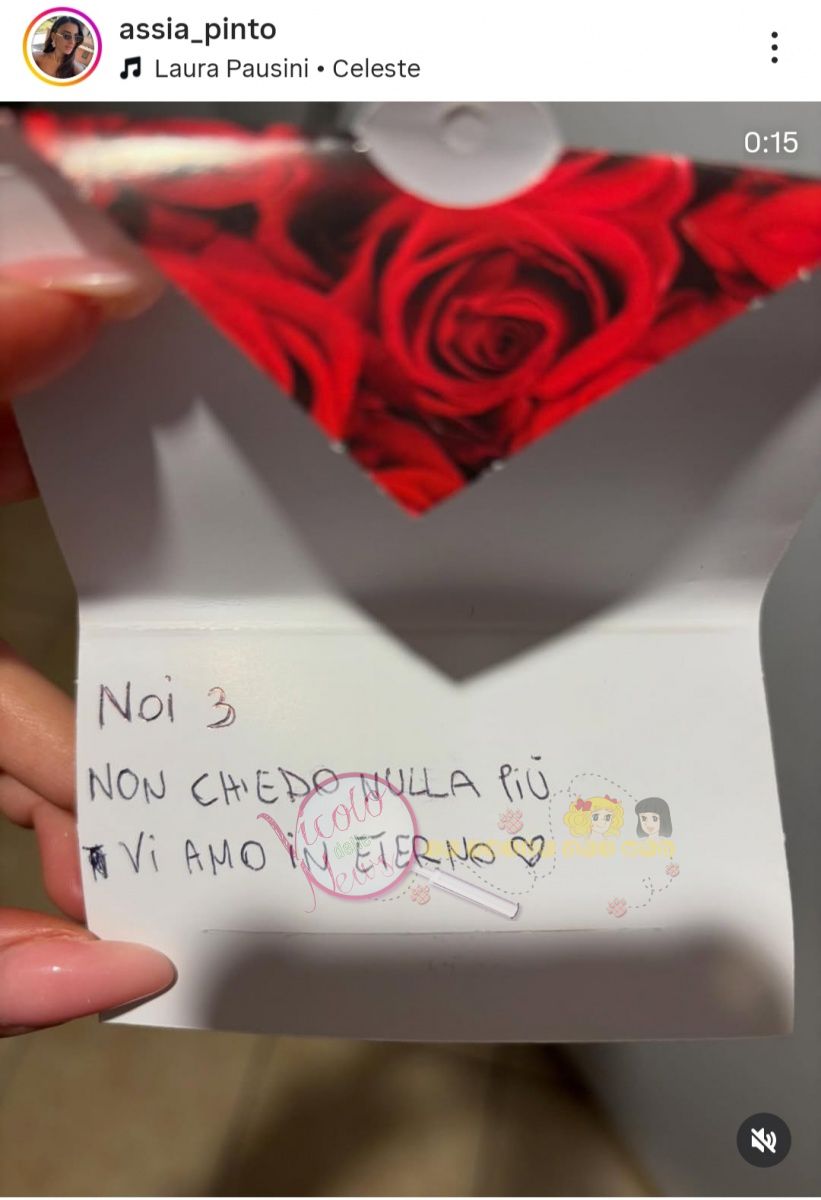 assia_pinto
Laura Pausini • Celeste
0:15
Noi 3
NON CHIEDO NULLA PIÙ
Vi AMO iN ETERNO ♡
Vicolo
delle
News